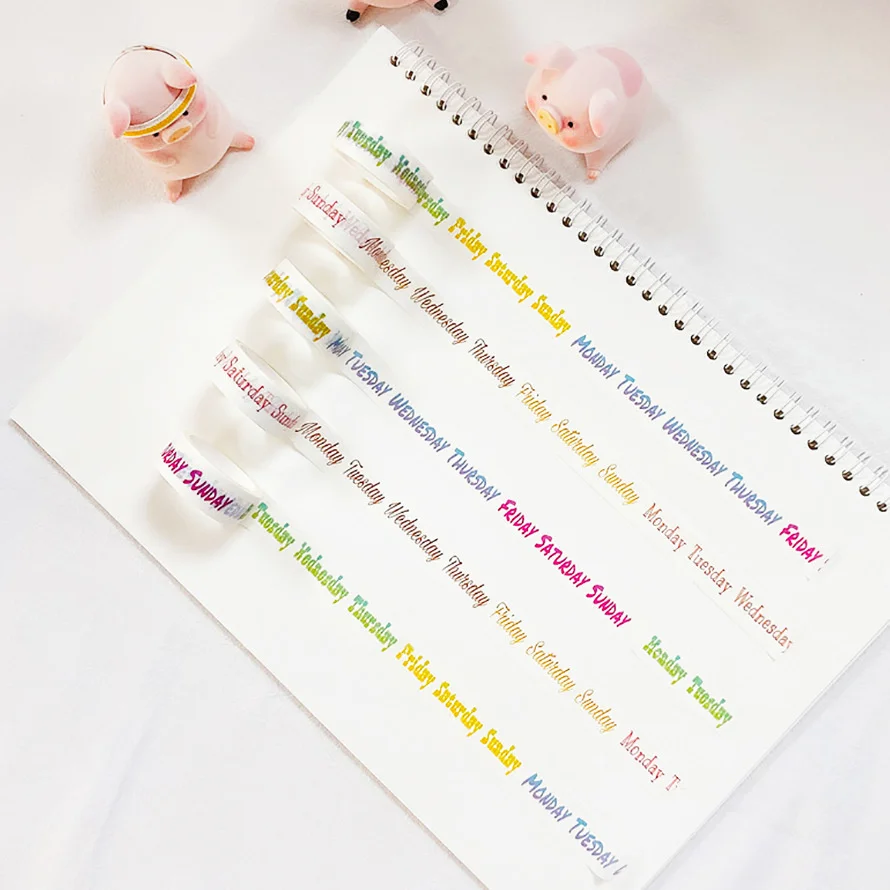 Tuesday Wednesday Friday Saturday Sunday MONDAY TUESDAY WEDNESDAY THURSDAY FRIDAY
Sunday Wednesday Thursday Friday Saturday Sunday Monday Tuesday Wednesday
Sunday TUESDAY WEDNESDAY THURSDAY FRIDAY SATURDAY SUNDAY Monday Tuesday
Saturday Monday Tuesday Wednesday Thursday Friday Saturday Sunday Monday
SUNDAY Tuesday Wednesday Thursday Friday Saturday Sunday MONDAY TUESDAY